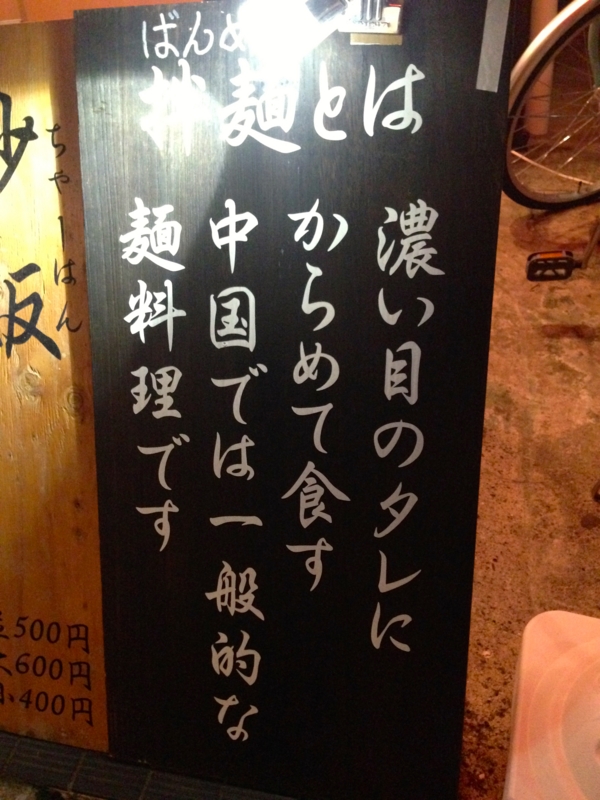 ばんめ
拌麺とは
濃い目のタレに
からめて食す
中国では一般的な
麺料理です
ちゃーはん
500円
600円
400円